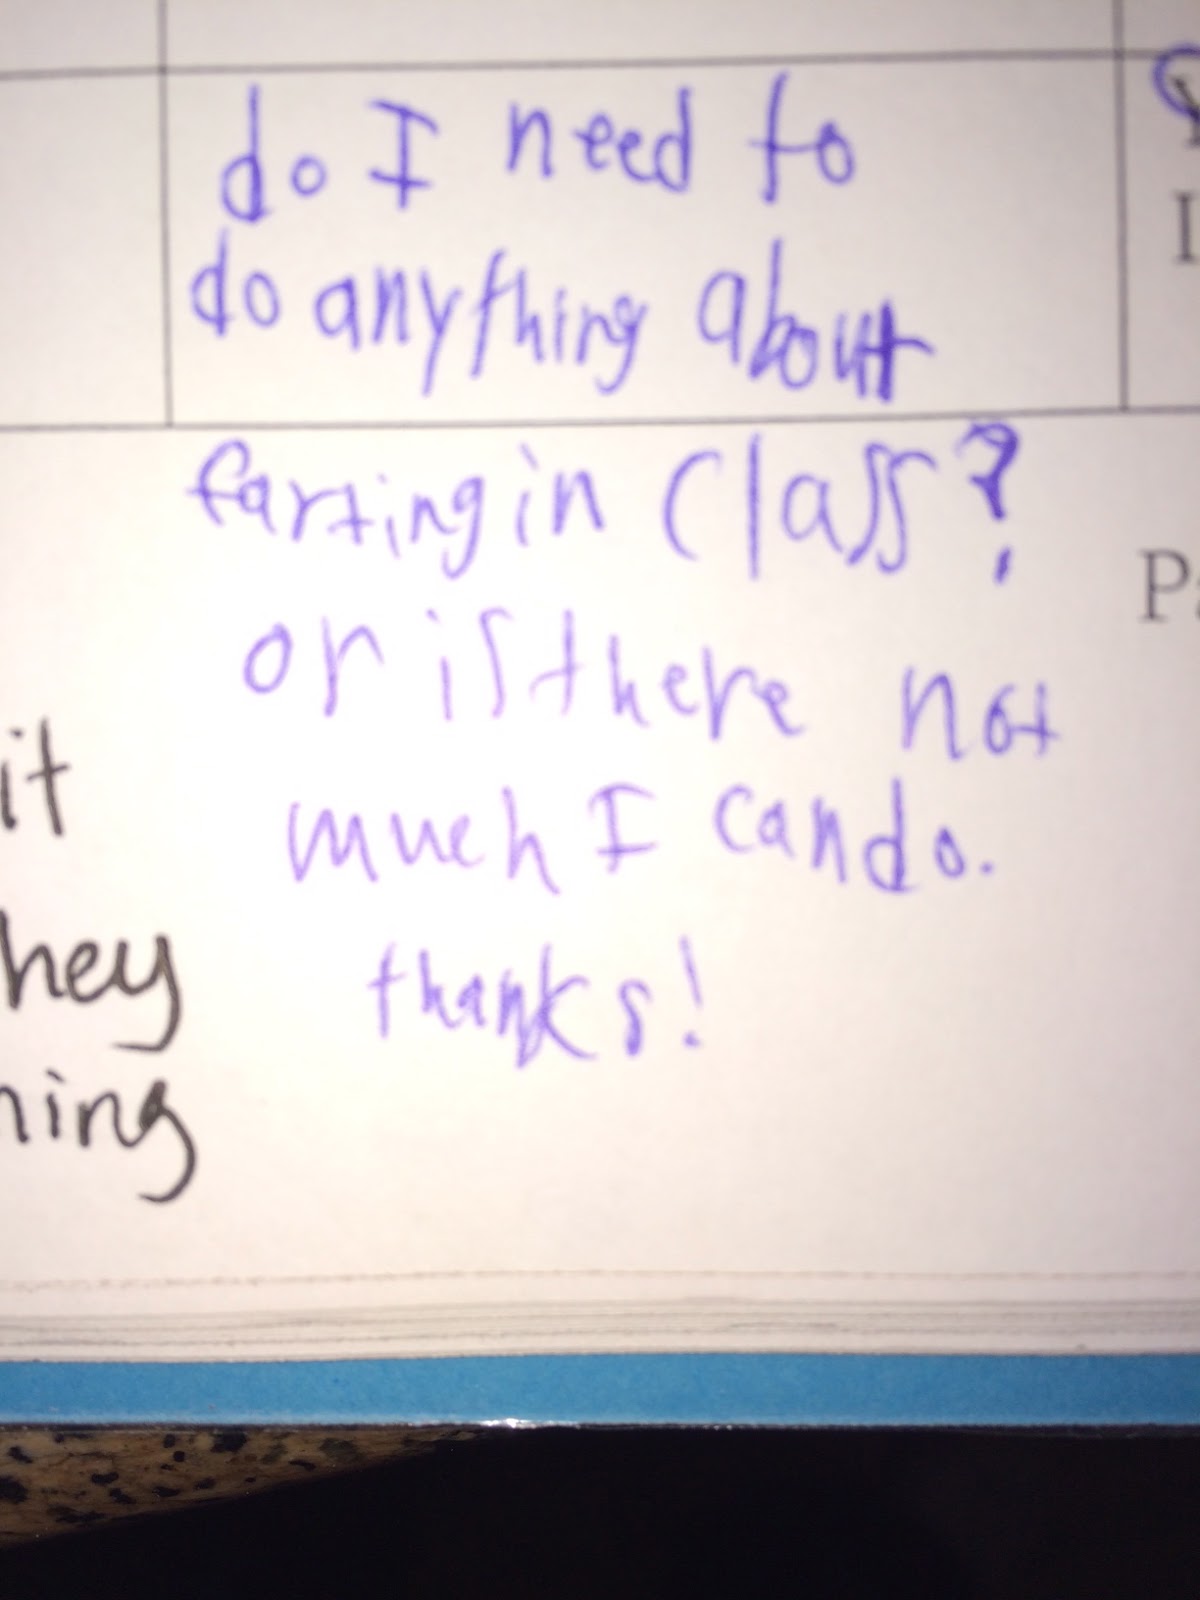 do I need to
do anything about
farting in class?
or is there not
much I can do.
thanks!
I
it
hey